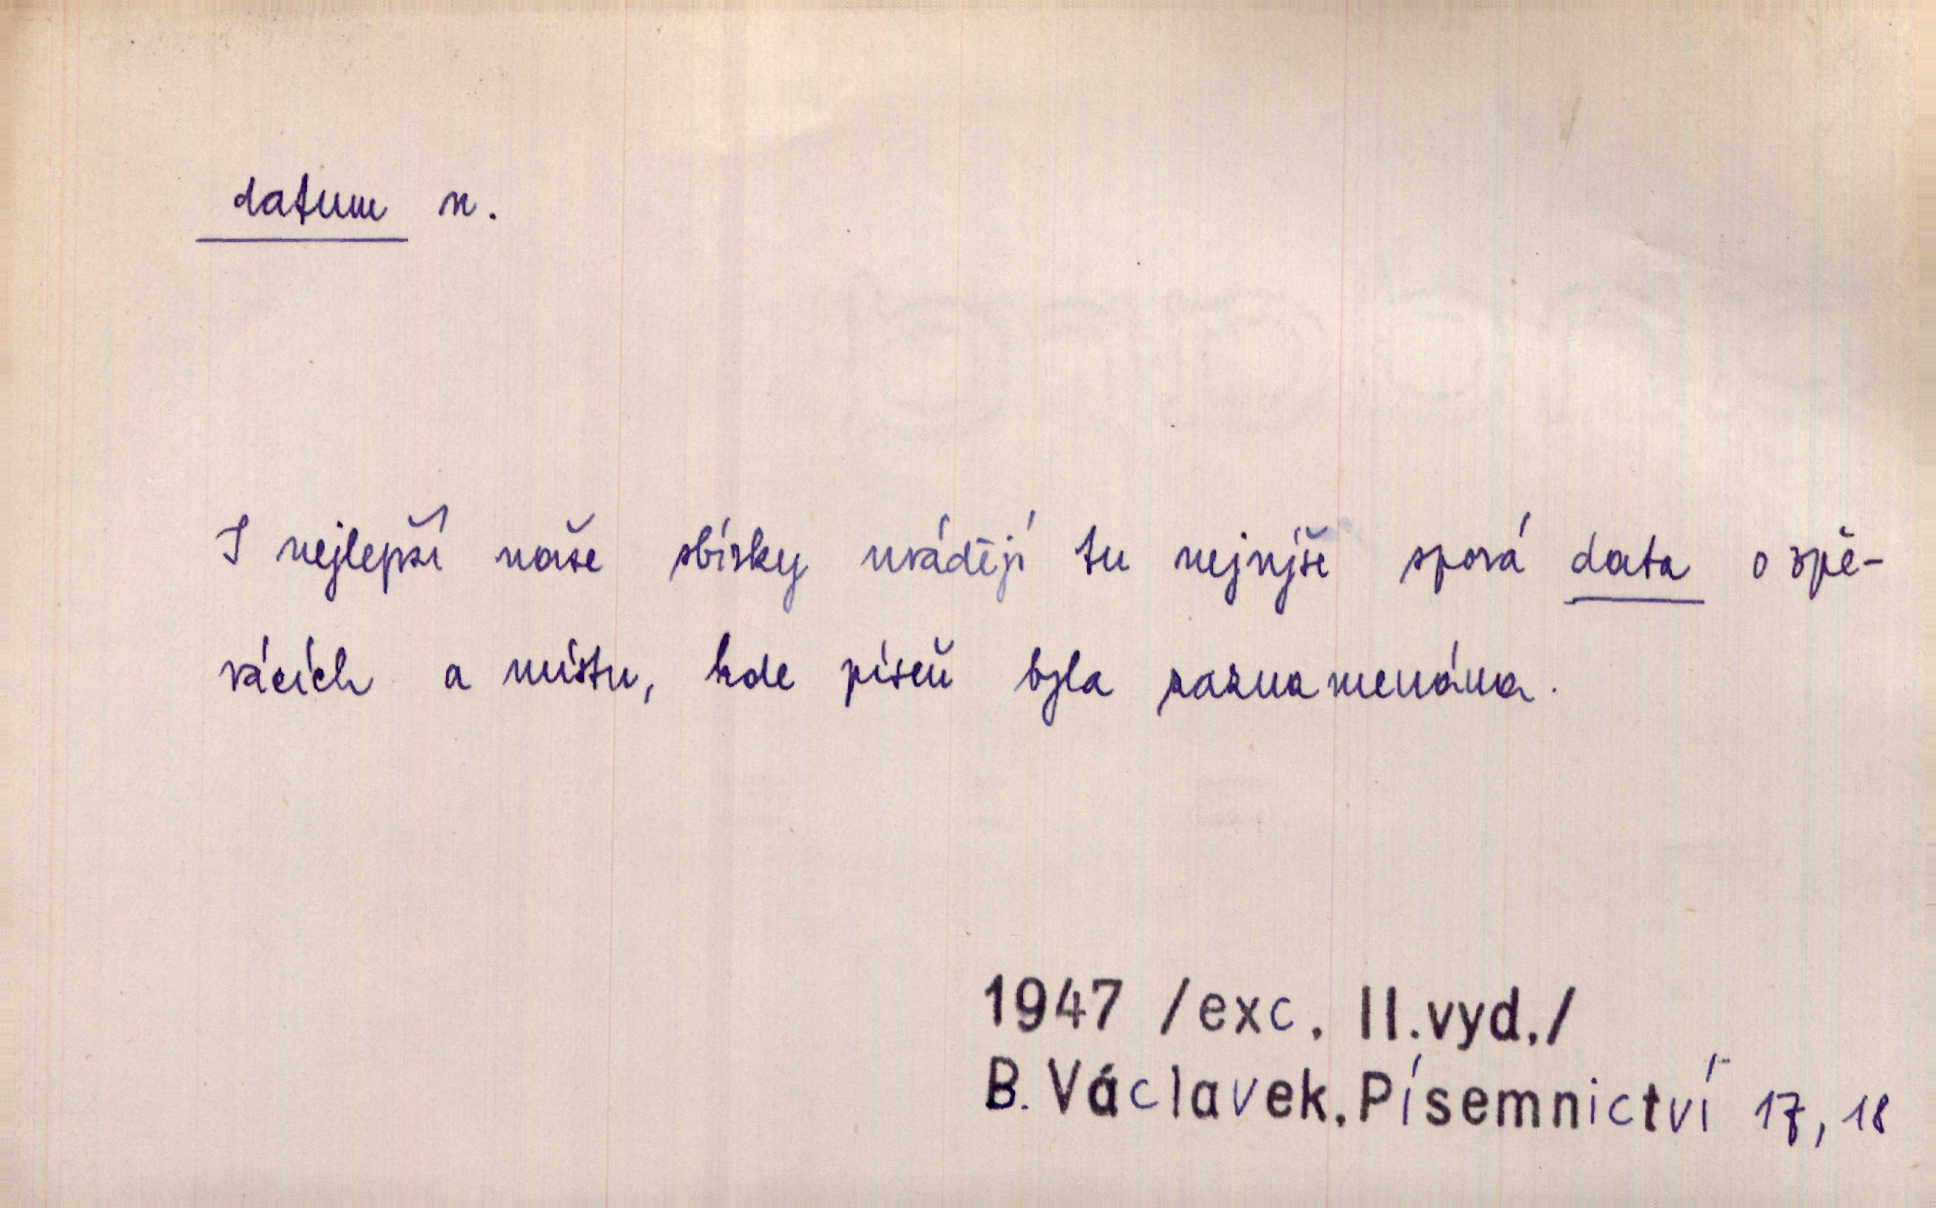 datum n.
I nejlepší naše sbírky uvádějí tu nejvýše sporá data o zpě-
vácích a místu, kde píseň byla zaznamenána.
1947 /exc. II.vyd./
B. Václavek, Písemnictví 17, 18